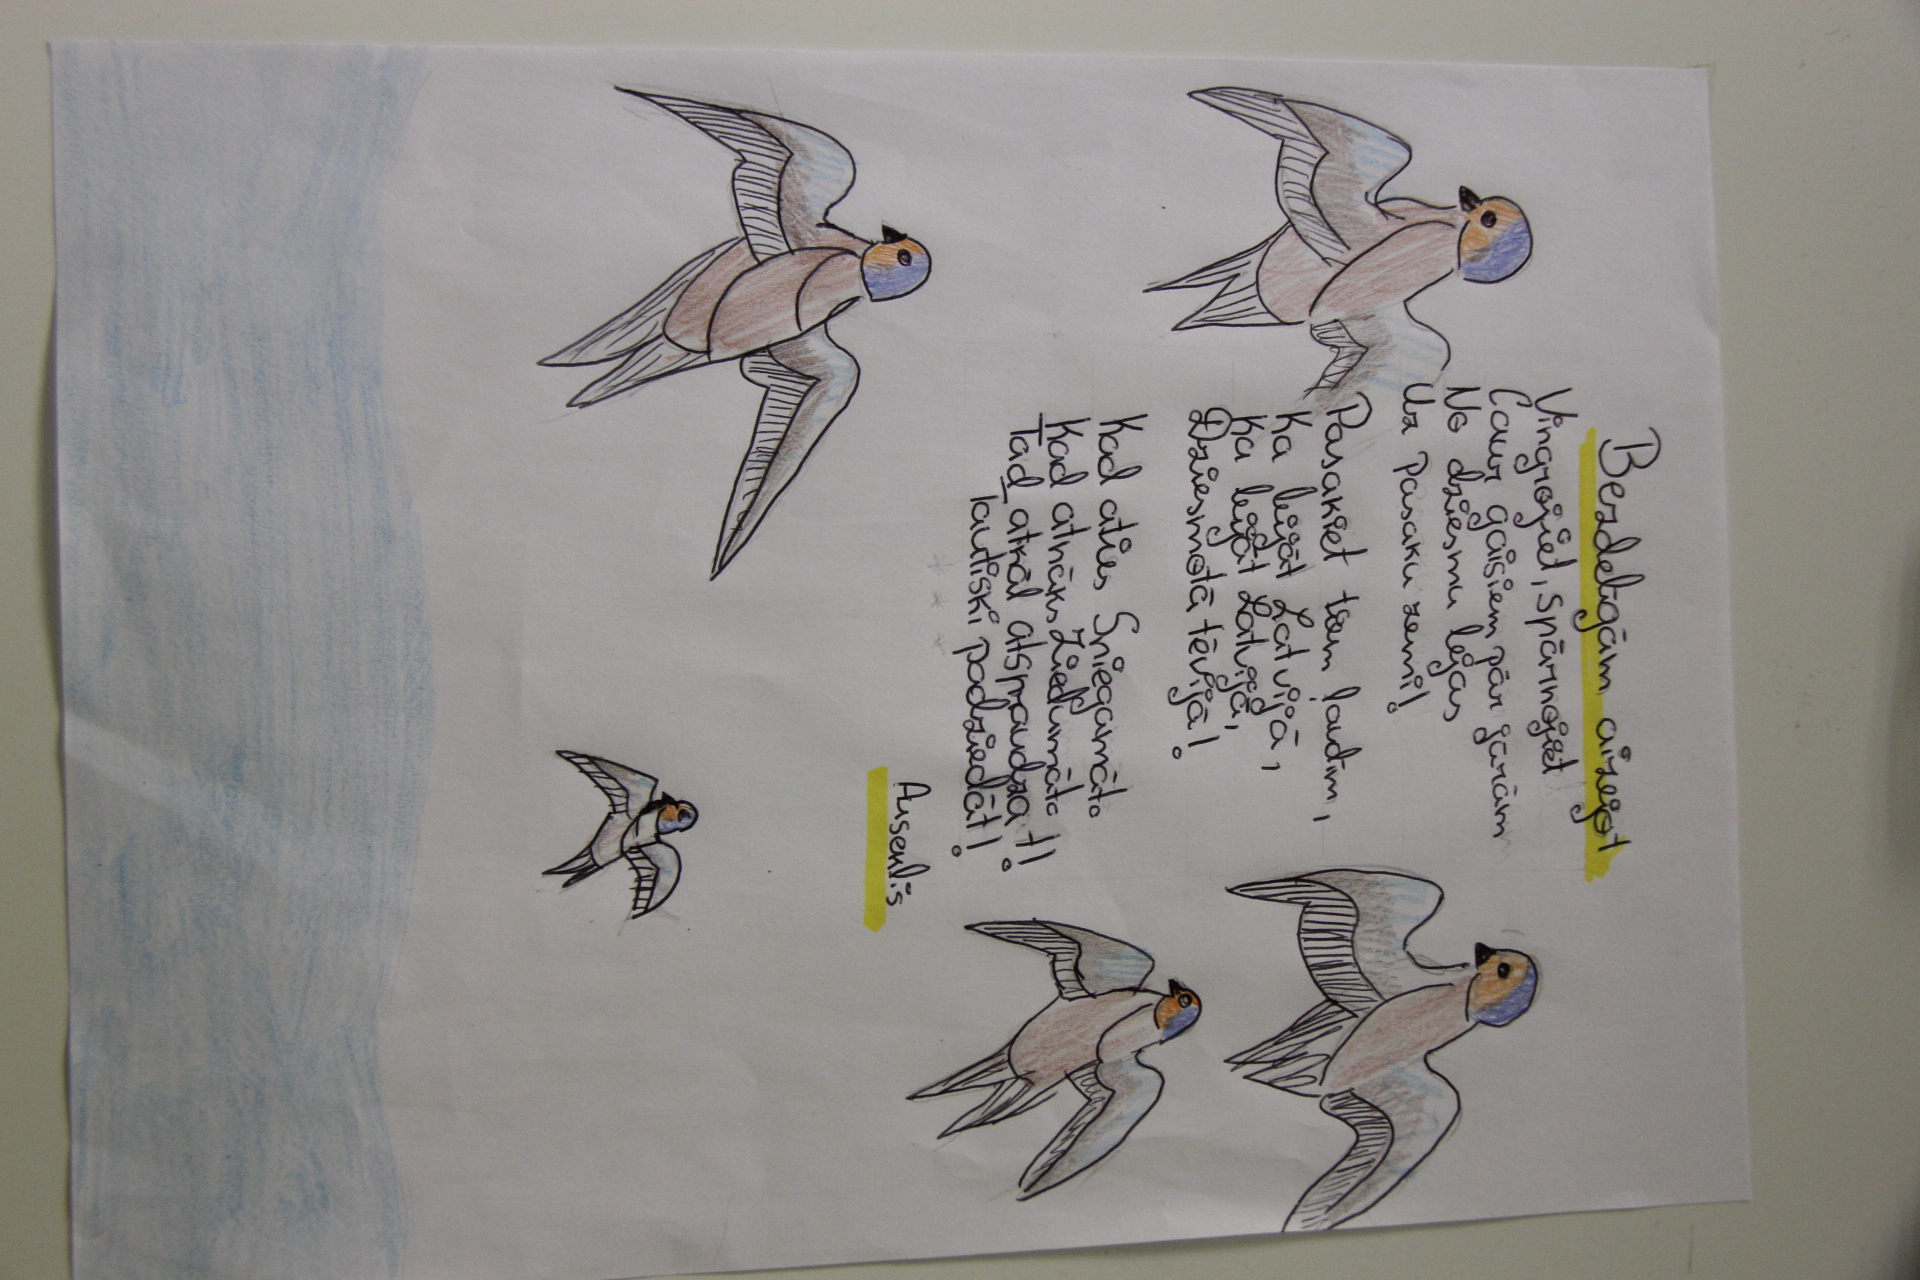 Bezdelīgām aizejot
Vingrojiet, spārnojiet
Caur gaisiem pār jūrām
No dziesmu lejas
Uz pasaku zemi!
Pasakiet tiem ļaudīm,
Ka lejāt Latvijā,
Ka lejāt Latvijā,
Dziesmotā tēvijā!
Kad aties Sniegamāte
Kad atnāks Ziedumāte
Tad atkal atsmaudzat!
Tautiski padziedāt!
* * *
Auseklis